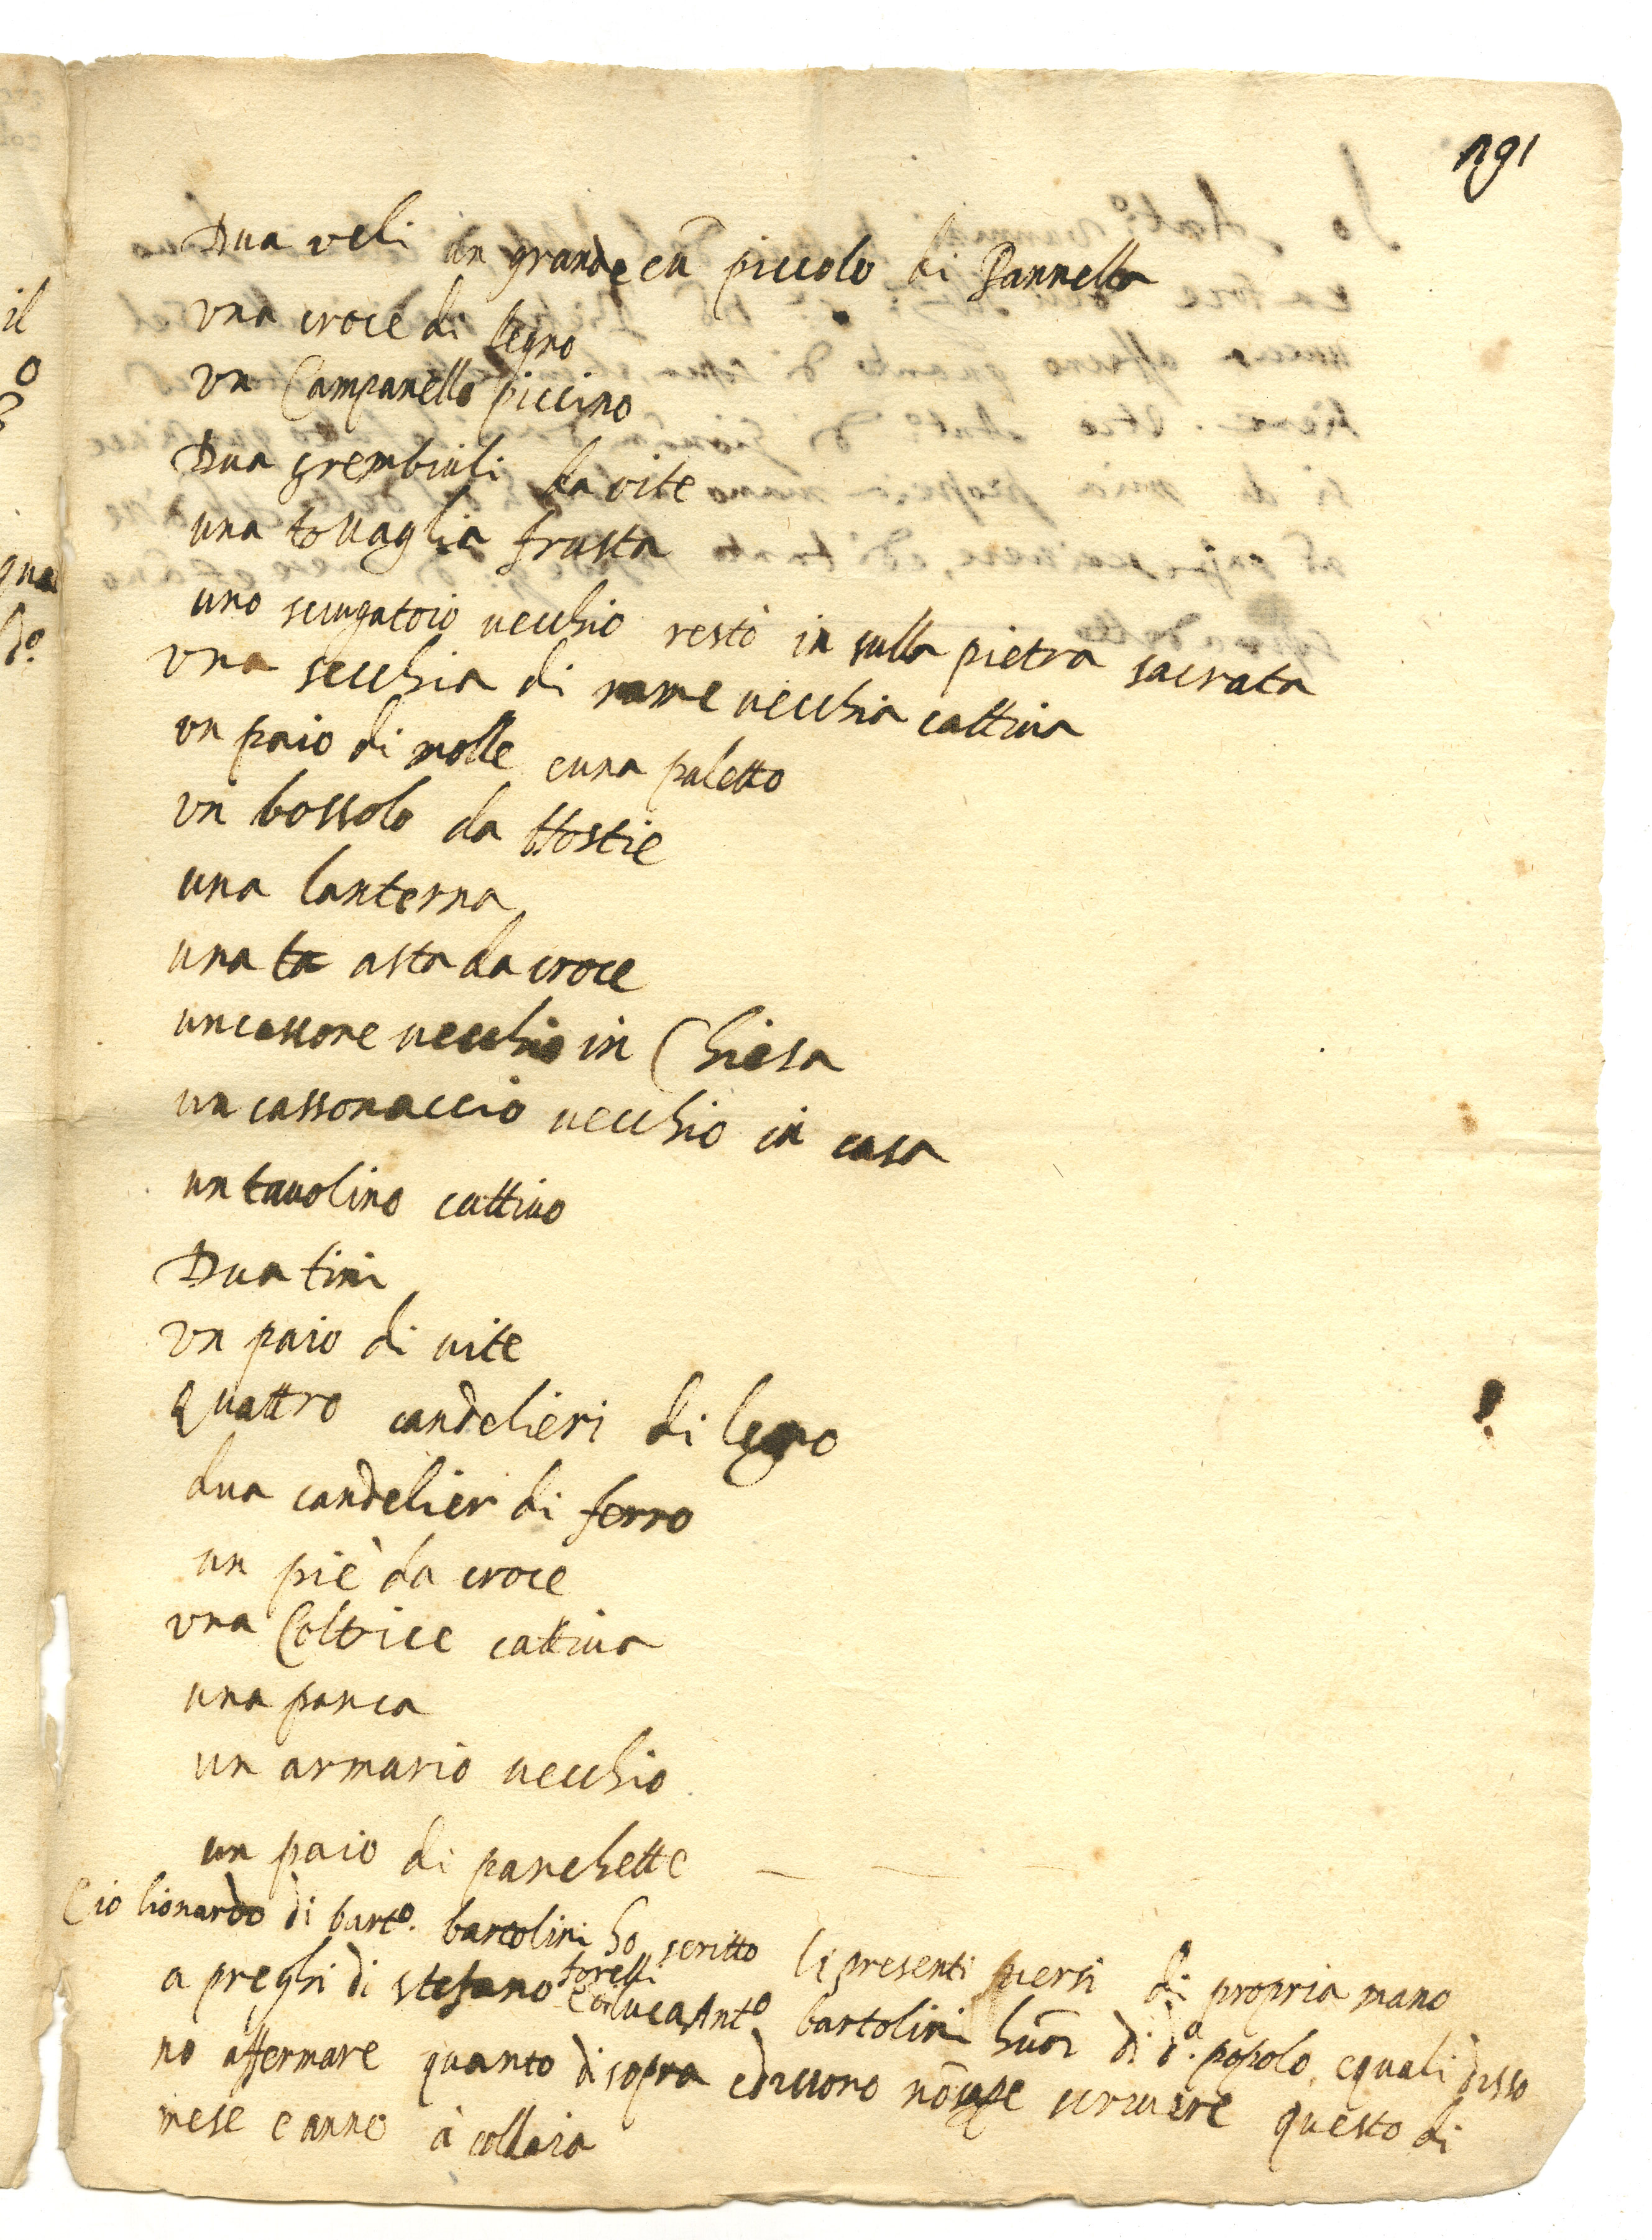 191
Dua veli un grande e ũ piccolo di Pannella
vna croce di legno
vn Campanello piccino
Dua grembiuli da vite
una tovaglia frusta
uno sciugatoio uecchio restò in sulla pietra sacrata
vna secchia di rame uecchia cattiua
vn paio di molle euna paletto
vn bossolo da Hostie
una lanterna
una ta asta da croce
un cassone uecchio in Chiesa
un cassonaccio uecchio in casa
un tauolino cattiuo
Dua tini
vn paio di uite
Quattro candelieri di legno
dua candelier di ferro
un piè da croce
vna Coltrice cattiua
una panca
un armario uecchio
un paio di panchette
E io lionardo di bartº. bartolini ho scritto li presenti uersi di propria mano
a preghi di stefano torelli e di luca Antº bartolini huõi di dº. popolo, equali disso
no affermare quanto di sopra edissono nõ sape scriuere questo di
mese e anno à collaia
il
o
qua
dº.